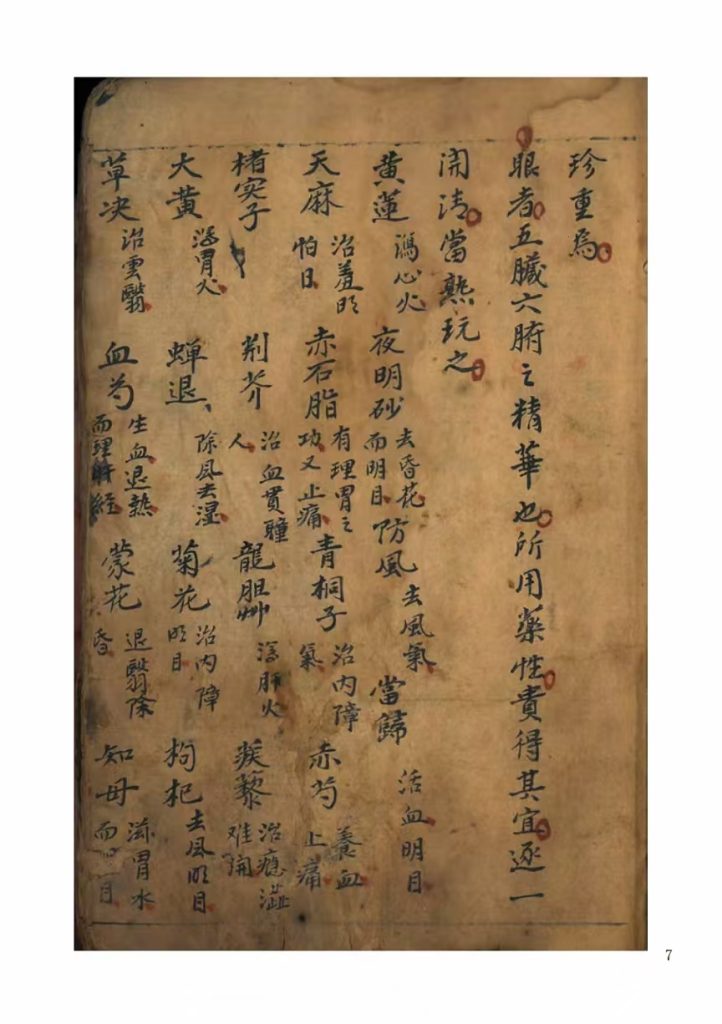 珍重焉
眼者五臟六腑之精華也所用藥性貴得其宜逐一
開清當熟玩之
黃蓮 瀉心火 夜明砂 去昏花而明目 防風 去風氣 當歸 活血明目
天麻 治羞明怕日 赤石脂 有理胃之功又止痛 青桐子 治內障氣 赤芍 養血止痛
楮实子 荆芥 治血貫瞳人 龍胆艸 瀉肝火 蒺藜 治瘾澁难開
大黃 瀉胃火 蝉退 除风去湿 菊花 治内障明目 枸杞 去风明目
草决 治雲翳 血芍 生血退熱而理肝経 蒙花 退翳除昏 知母 滋胃水而目
7